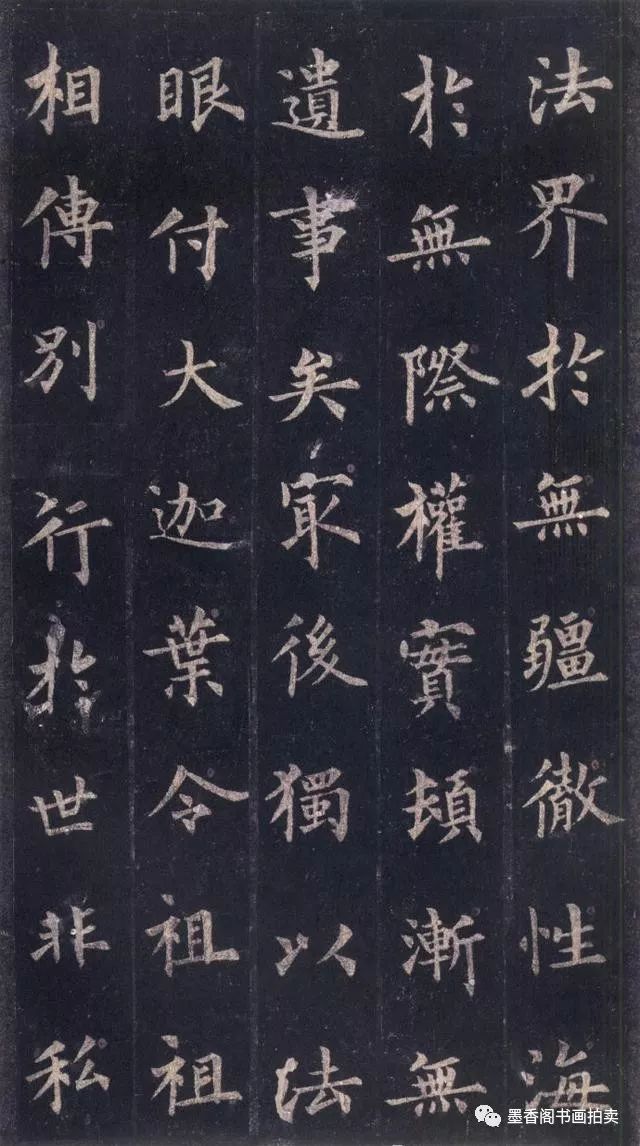 法界於無疆徹性海
於無際權實頓漸無
遺事矣㝡後獨以法
眼付大迦葉令祖祖
相傳別行於世非私
墨香阁书画拍卖